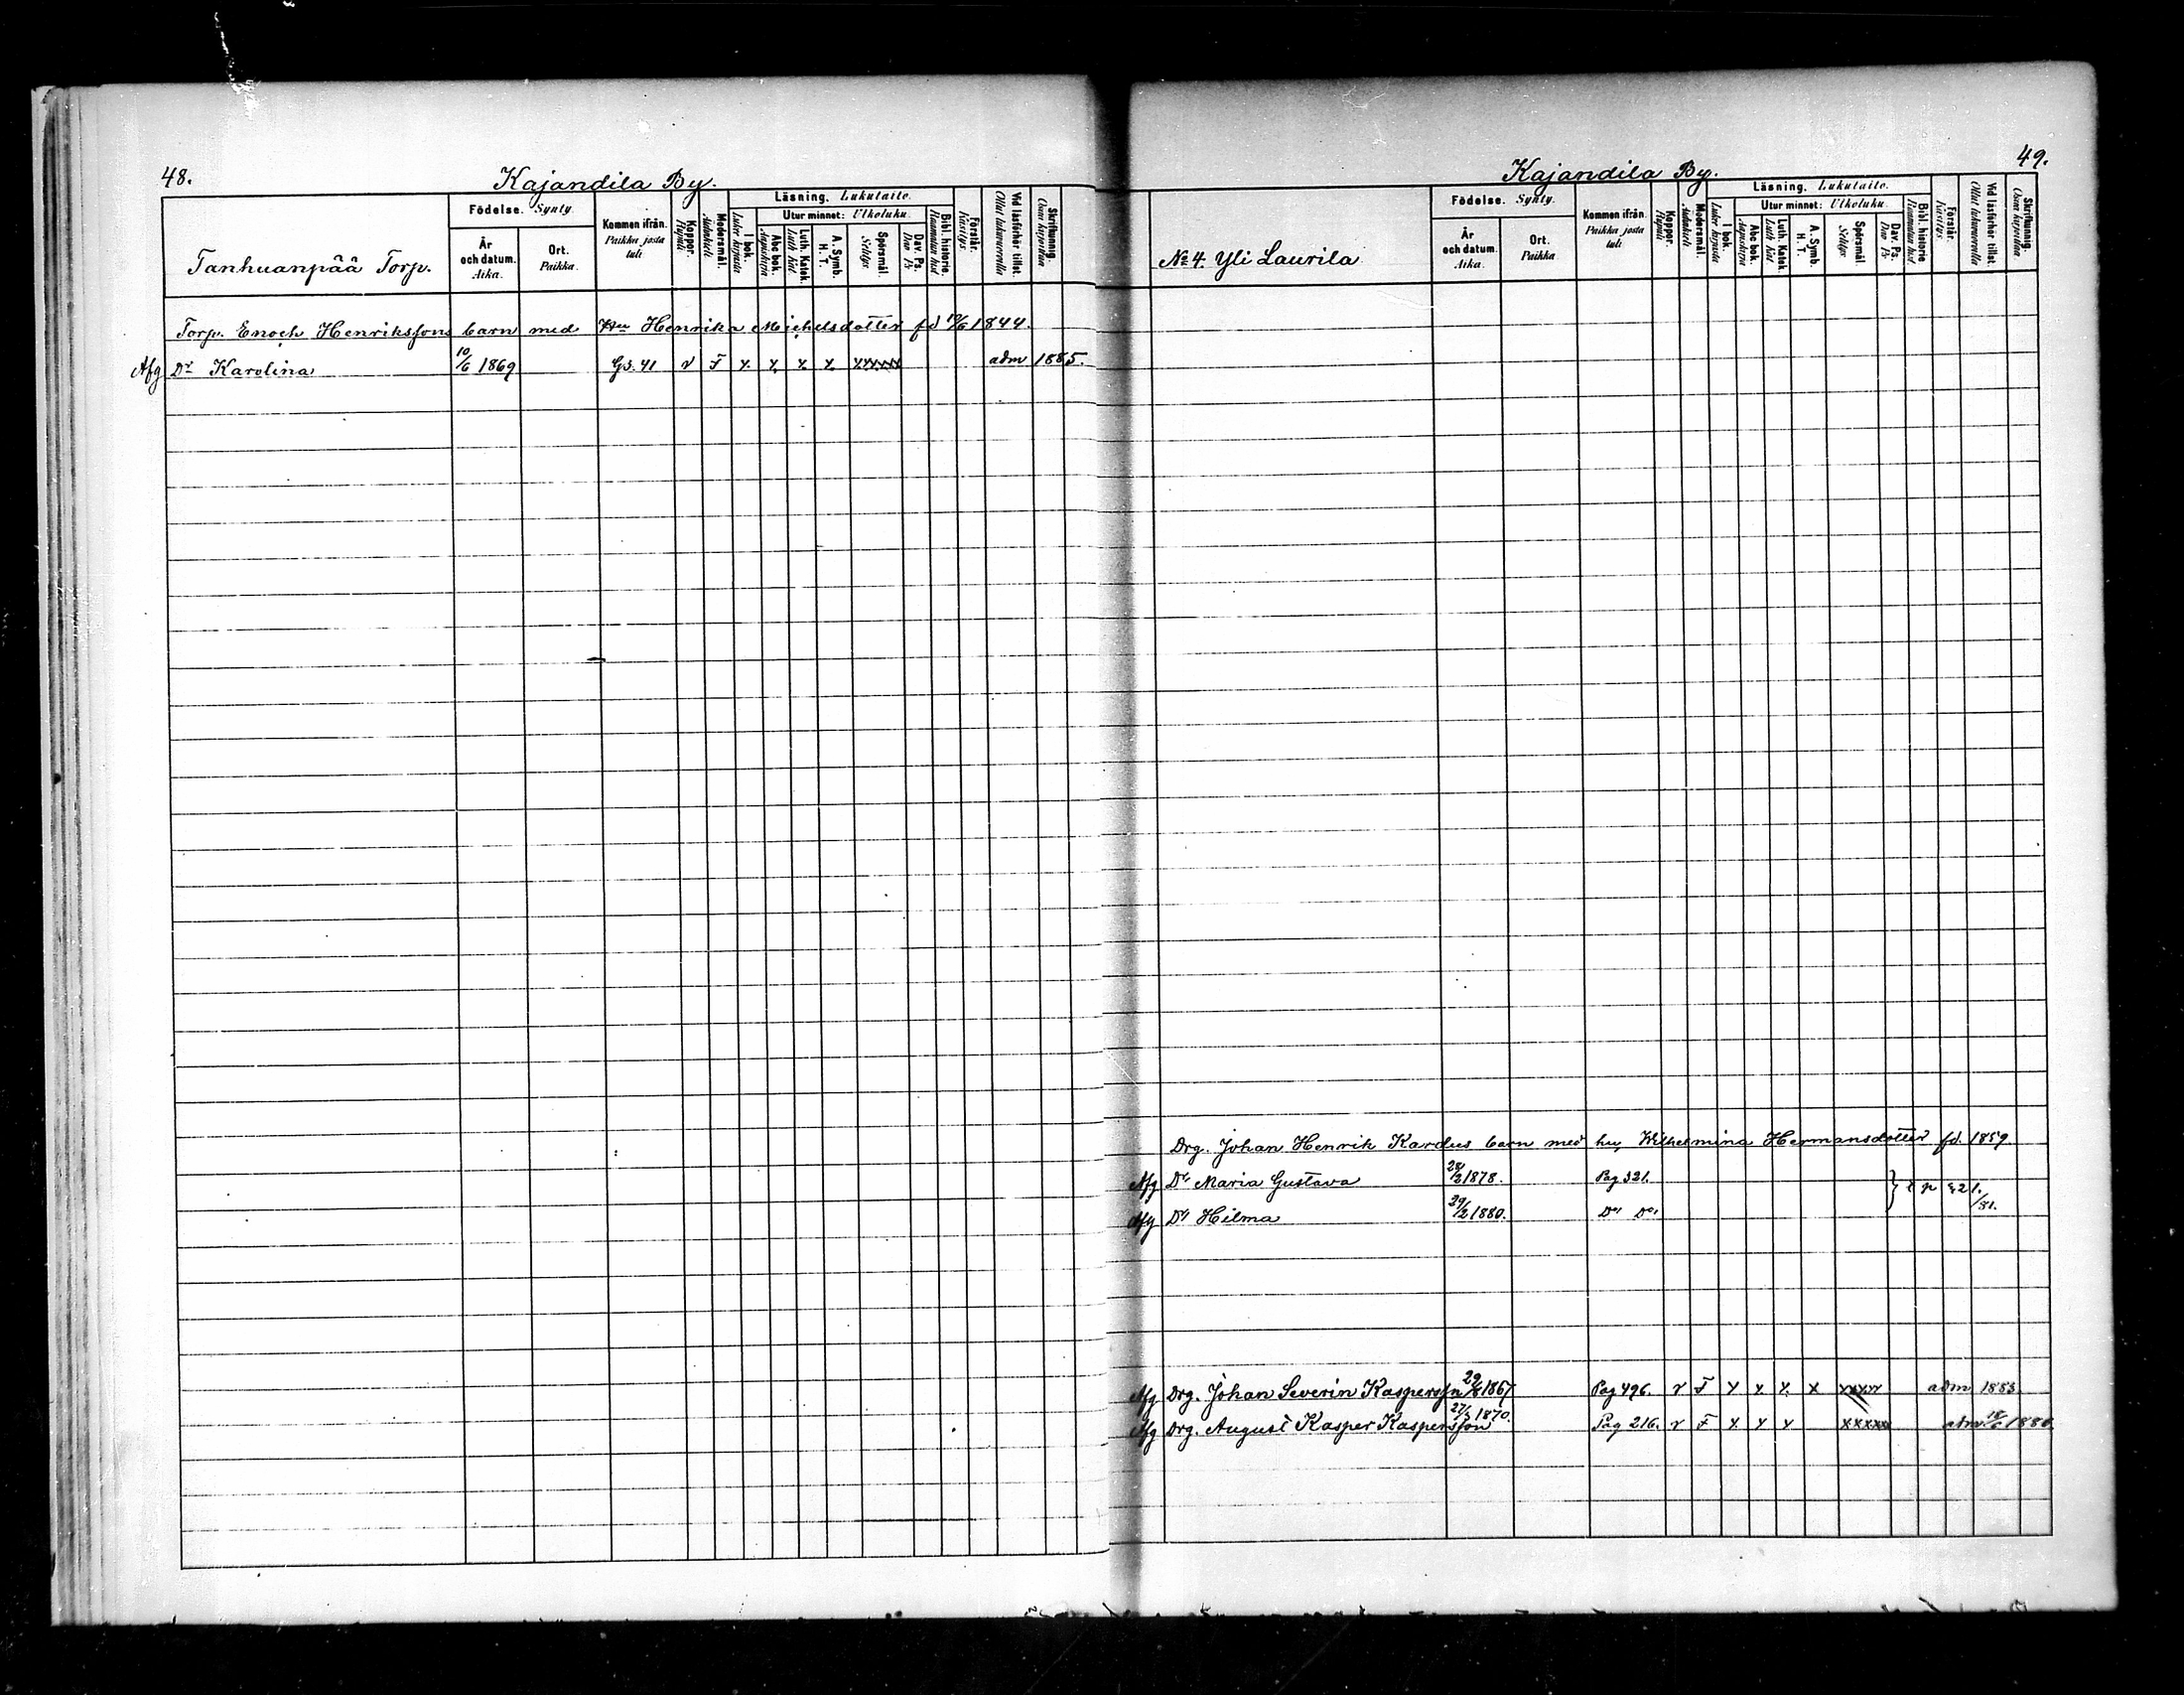 48.
Kajandila By.
Tanhuanpää Torp.
Födelse. Synty.
År och datum. Aika.
Ort. Paikka.
Kommen ifrån. Paikka josta tuli
Koppor. Rupuli
Modersmål. Äidinkieli
Läsning. Lukutaito.
I bok. Lukee kirjasta
Utur minnet: Ulkoluku.
Abc bok. Aapiskirja
Luth. Katek. Luth Kat
A. Symb. H. T.
Spörsmål. Selitys
Dav. Ps. Dav Ps
Bibl. historie. Raamatun hist.
Förstår. Käsitys.
Vid läsförhör tillst. Ollut lukuvuorolla
Skrifkunnig. Osaa kirjoittaa
Torp. Enoch Henrikssons barn med Henrika Michelsdotter fd 19/6 1844.
Afg Dr Karolina 10/6 1869 Gs. 41 v F x x x x xxxxx adm 1885.
49.
Kajandila By.
No 4. Yli Laurila
Födelse. Synty.
År och datum. Aika.
Ort. Paikka
Kommen ifrån. Paikka josta tuli
Koppor. Rupuli
Modersmål. Äidinkieli
Läsning. Lukutaito.
I bok. Lukee kirjasta
Utur minnet: Ulkoluku.
Abc bok. Aapiskirja
Luth. Katek. Luth Kat
A. Symb. H. T.
Spörsmål. Selitys
Dav. Ps. Dav Ps
Bibl. historie. Raamatun hist.
Förstår. Käsitys
Vid läsförhör tillst. Ollut lukuvuorolla
Skrifkunnig. Osaa kirjoittaa
Drg. Johan Henrik Kardus barn med hu, Wilhelmina Hermansdotter fd. 1859
Afg Dr Maria Gustava 28/2 1878. Pag 321. } p 321./81.
Afg Dr Hilma 29/2 1880. Do Do
Afg Drg. Johan Severin Kaspersson 29/6 1867 Pag 496. v F x x x x xxxxx adm 1883
Afg Drg. August Kasper Kaspersson 27/5 1870. Pag 216. v F x x x xxxxx adm 18/6 1886.